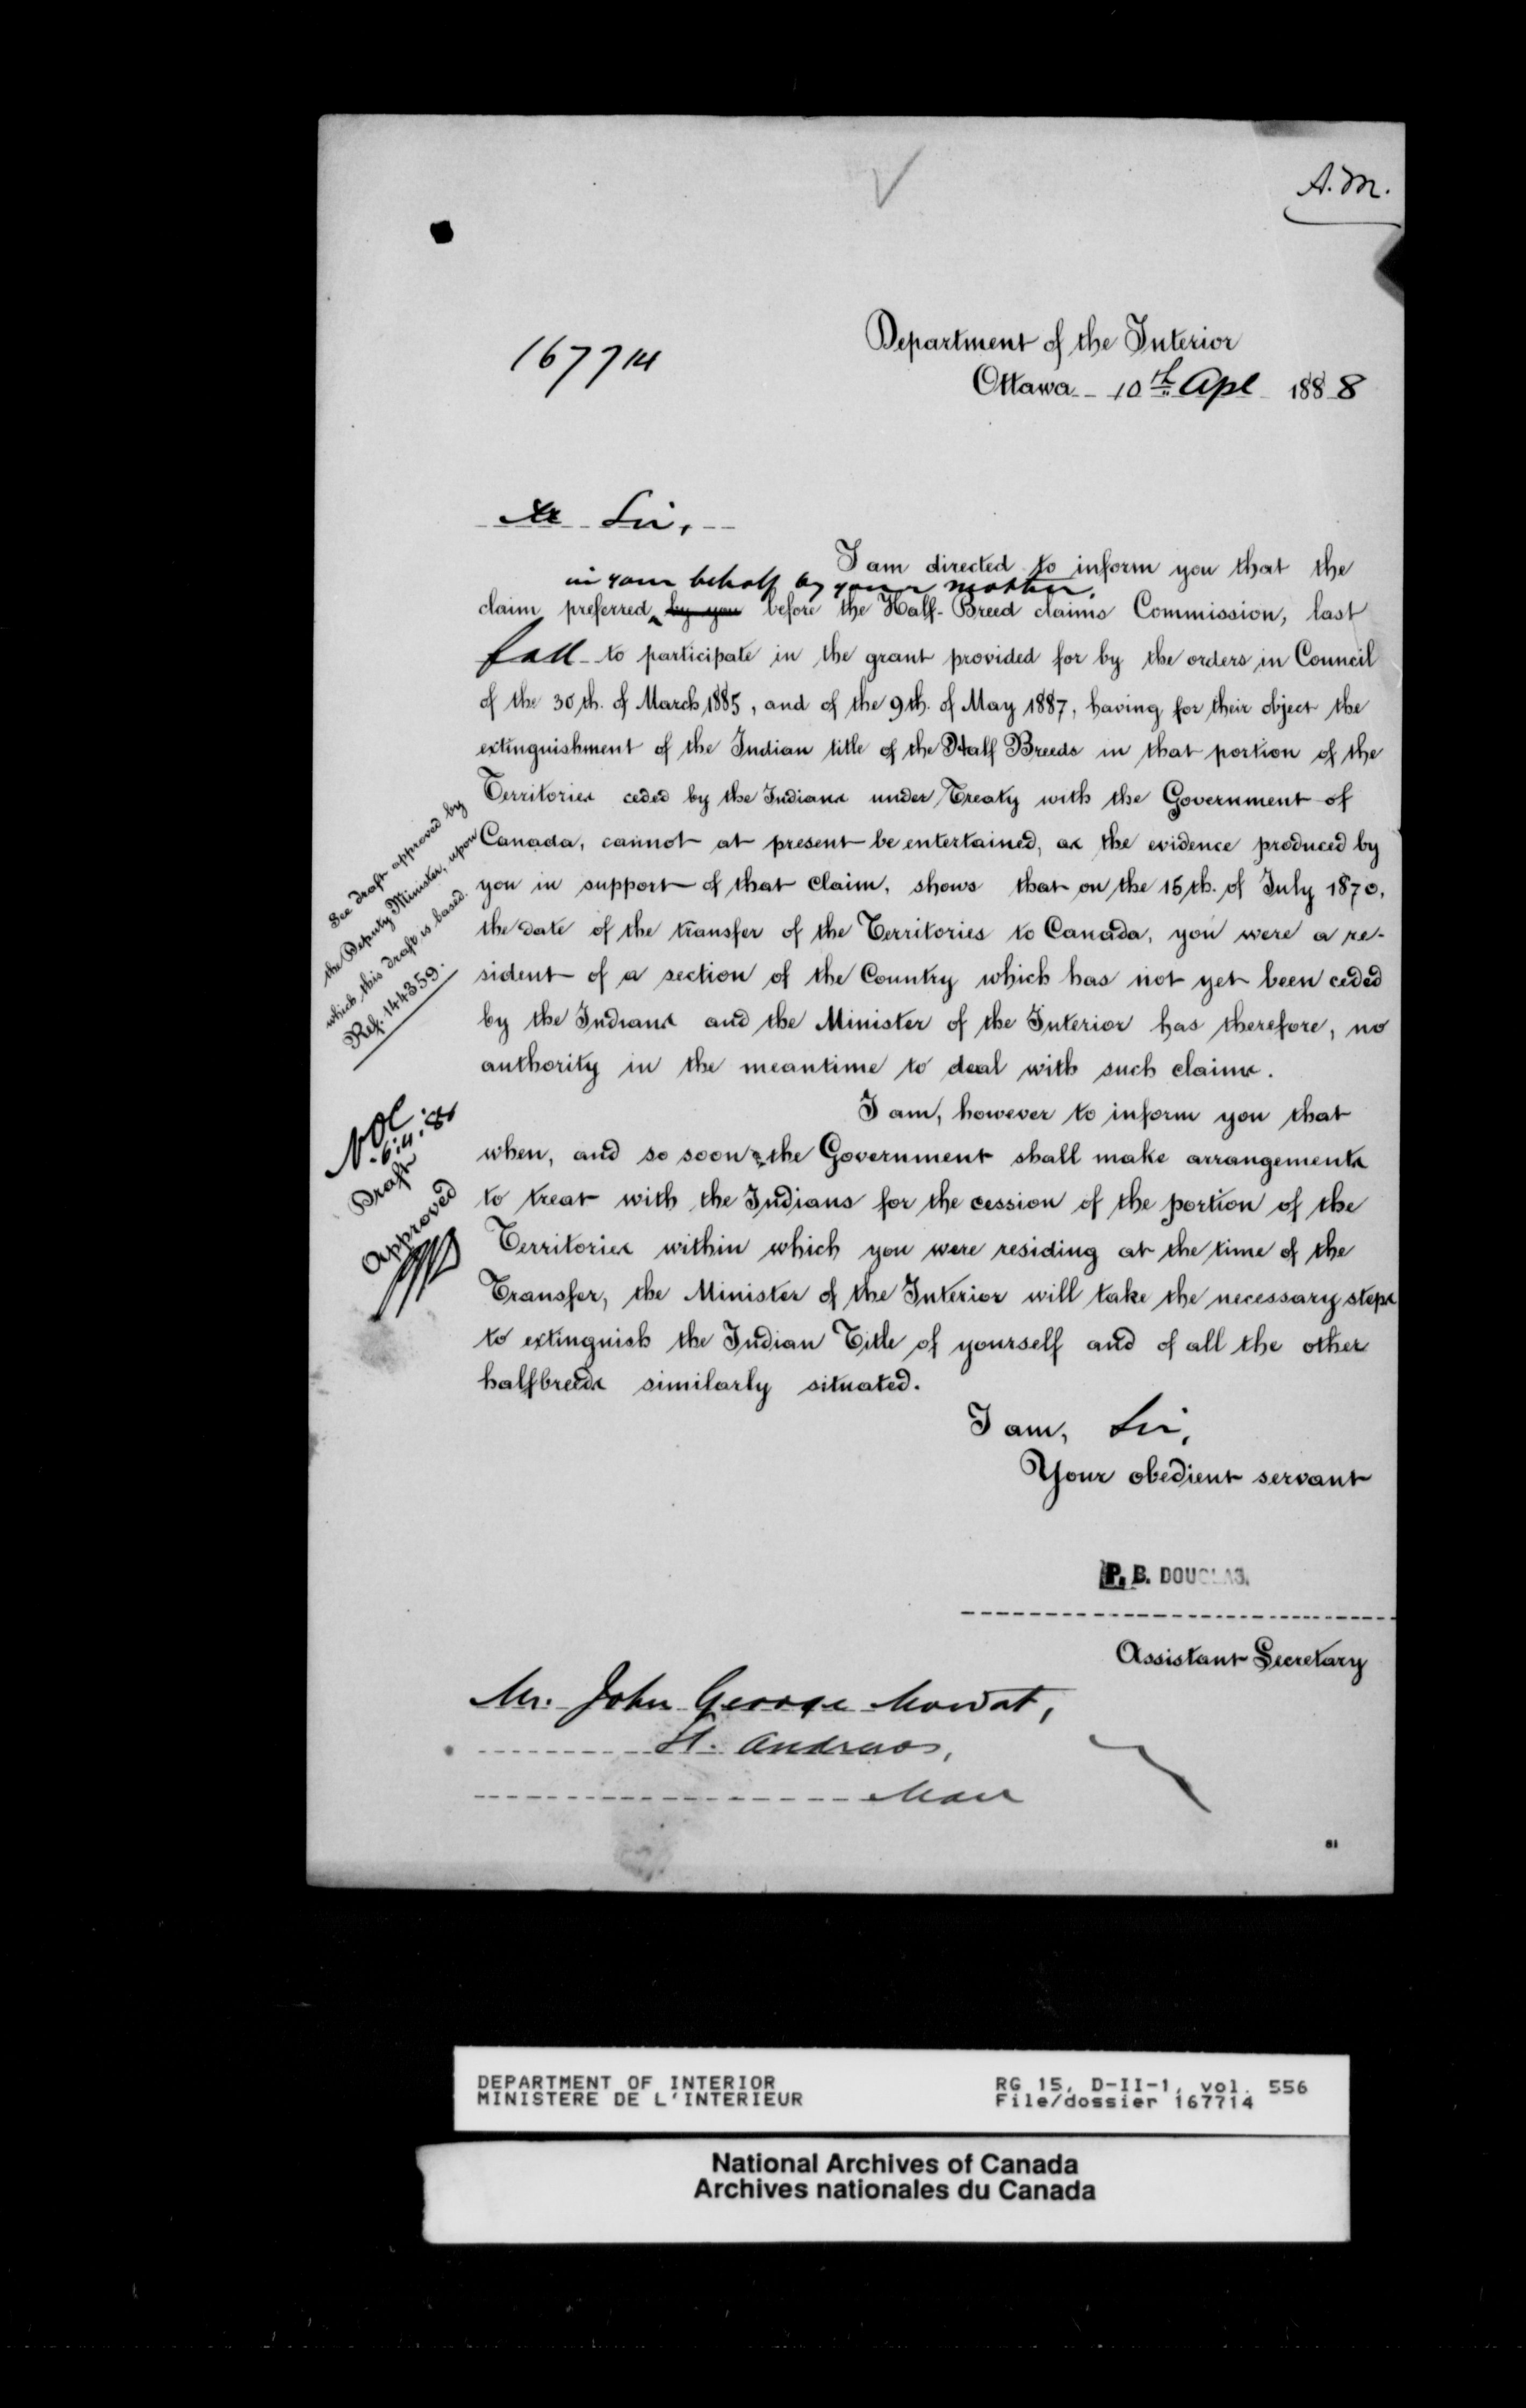 A.M.
167714
Department of the Interior
Ottawa 10th Apl 1888
Sir,
I am directed to inform you that the
in your behalf by your mother,
claim preferred by you before the Half-Breed claims Commission, last
fall to participate in the grant provided for by the orders in Council
of the 30th. of March 1885, and of the 9th. of May 1887, having for their object the
extinguishment of the Indian title of the Half Breeds in that portion of the
Territories ceded by the Indians under Treaty with the Government of
Canada, cannot at present be entertained, as the evidence produced by
you in support of that claim, shows that on the 15th. of July 1870,
the date of the transfer of the Territories to Canada, you were a re-
sident of a section of the Country which has not yet been ceded
by the Indians and the Minister of the Interior has therefore, no
authority in the meantime to deal with such claims.
I am, however to inform you that
when, and so soon as the Government shall make arrangements
to treat with the Indians for the cession of the portion of the
Territories within which you were residing at the time of the
Transfer, the Minister of the Interior will take the necessary steps
to extinguish the Indian Title of yourself and of all the other
halfbreeds similarly situated.
See draft approved by
the Deputy Minister, upon
which this draft is based.
Ref. 144359.
Draft
Approved
I am, Sir,
Your obedient servant
P. B. DOUGLAS.
Assistant Secretary
Mr. John George Mowat,
St. Andrews,
Man
81
DEPARTMENT OF INTERIOR
MINISTERE DE L'INTERIEUR
RG 15, D-II-1, vol. 556
File/dossier 167714
National Archives of Canada
Archives nationales du Canada